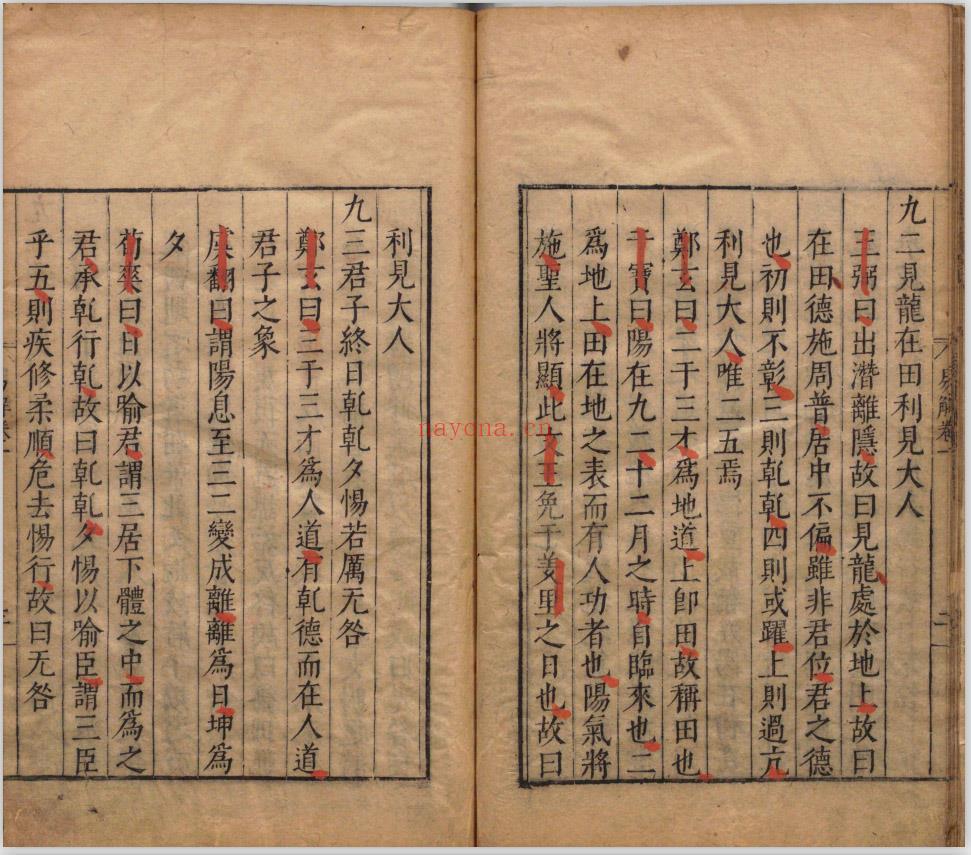 九二見龍在田利見大人
王弼曰出潛離隱故曰見龍處於地上故曰
在田德施周普居中不偏雖非君位君之德
也初則不彰三則乹乹四則或躍上則過亢
利見大人唯二五焉
鄭玄曰二于三才爲地道上卽田故稱田也
干寶曰陽在九二十二月之時自臨來也二
爲地上田在地之表而有人功者也陽氣將
施聖人將顯此文王免于羑里之日也故曰
利見大人
九三君子終日乹乹夕惕若厲无咎
鄭玄曰三于三才爲人道有乹德而在人道
君子之象
虞翻曰謂陽息至三二變成離離爲日坤爲
夕
荀爽曰日以喻君謂三居下體之中而爲之
君承乹行乹故曰乹乹夕惕以喻臣謂三臣
乎五則疾修柔順危去惕行故曰无咎
易解卷一
nayona.cn